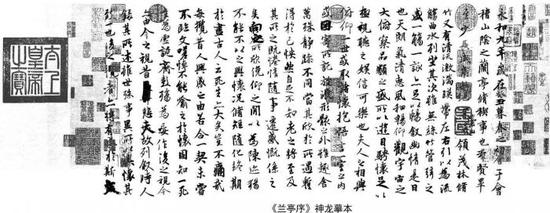 永和九年歲在癸丑暮春之初會于會
稽山陰之蘭亭脩禊事也群賢畢
至少長咸集此地有崇山峻領茂林脩
竹又有清流激湍暎帶左右引以為流
觴曲水列坐其次雖無絲竹管弦之
盛一觴一詠亦足以暢敘幽情是日
也天朗氣清惠風和暢仰觀宇宙之
大俯察品類之盛所以遊目騁懷足以
極視聽之娛信可樂也夫人之相與
俯仰一世或取諸懷抱悟言一室之內
或因寄所託放浪形骸之外雖趣舍
萬殊靜躁不同當其欣於所遇暫
得於己怏然自足不知老之將至及
其所之既惓情隨事遷感慨係之
矣向之所欣俛仰之間以為陳迹猶
不能不以之興懷況脩短隨化終期
於盡古人云死生亦大矣豈不痛哉
每攬昔人興感之由若合一契未嘗
不臨文嗟悼不能喻之於懷固知一死
生為虛誕齊彭殤為妄作後之視
今亦由今之視昔悲夫故列敘時人
錄其所述雖世殊事異所以興懷
其致一也後之攬者亦將有感於斯
文
太上皇帝之寶
《兰亭序》神龙摹本